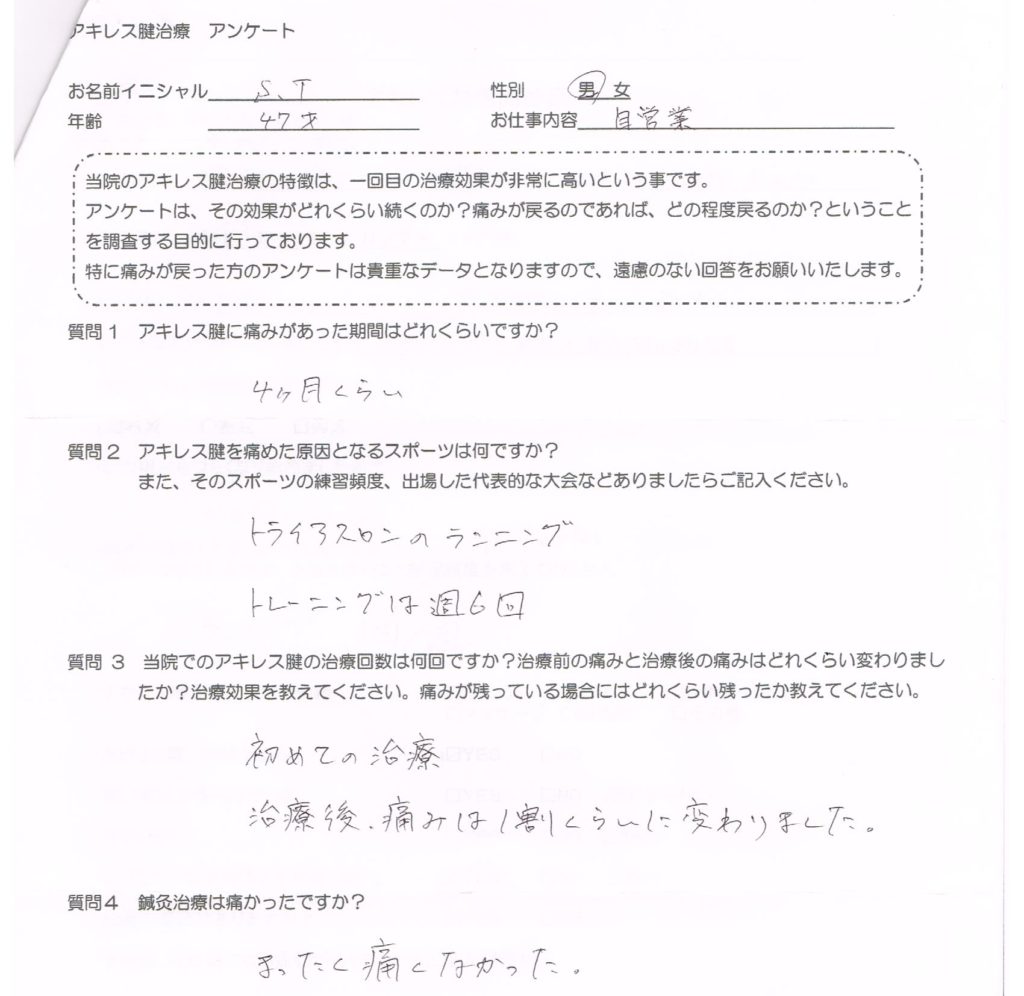 アキレス腱治療　アンケート
お名前イニシャル S.T 性別 男 女
年齢 47才 お仕事内容 自営業
当院のアキレス腱治療の特徴は、一回目の治療効果が非常に高いという事です。
アンケートは、その効果がどれくらい続くのか？痛みが戻るのであれば、どの程度戻るのか？ということ
を調査する目的に行っております。
特に痛みが戻った方のアンケートは貴重なデータとなりますので、遠慮のない回答をお願いいたします。
質問１　アキレス腱に痛みがあった期間はどれくらいですか？
4ヶ月くらい
質問２　アキレス腱を痛めた原因となるスポーツは何ですか？
また、そのスポーツの練習頻度、出場した代表的な大会などありましたらご記入ください。
トライアスロンの ランニング
トレーニングは週6回
質問 3　当院でのアキレス腱の治療回数は何回ですか？治療前の痛みと治療後の痛みはどれくらい変わりまし
たか？治療効果を教えてください。痛みが残っている場合にはどれくらい残ったか教えてください。
初めての治療
治療後、痛みは1割くらいに変わりました。
質問４　鍼灸治療は痛かったですか？
まったく痛くなかった。